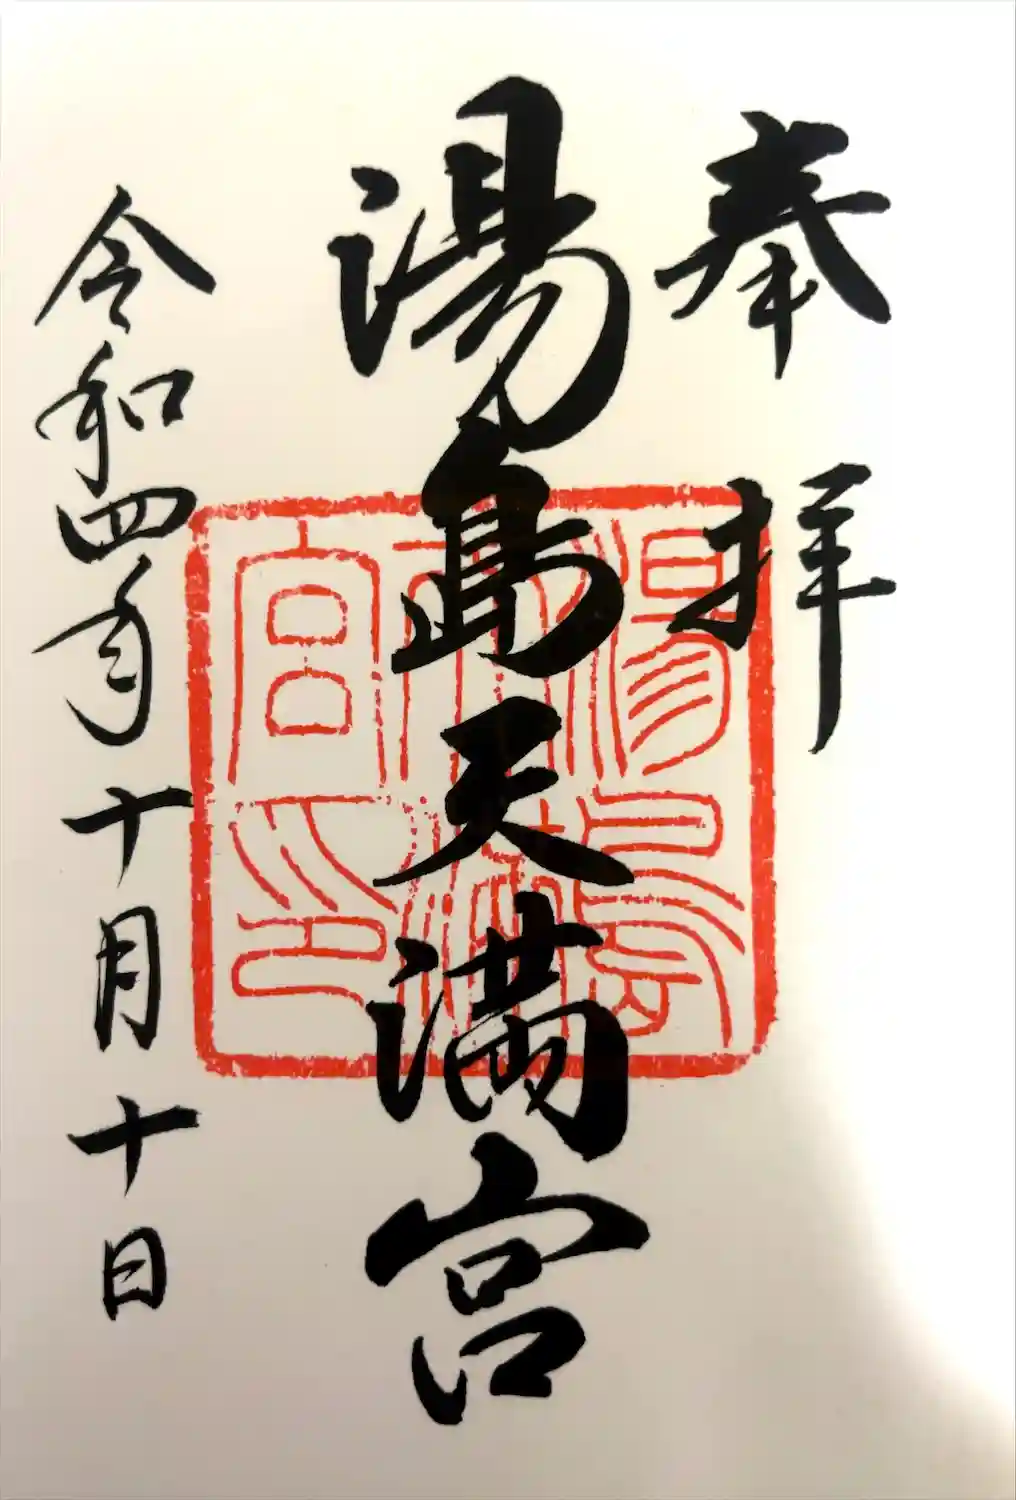 奉拝
湯島天満宮
令和四年十月十日
湯島天満宮印